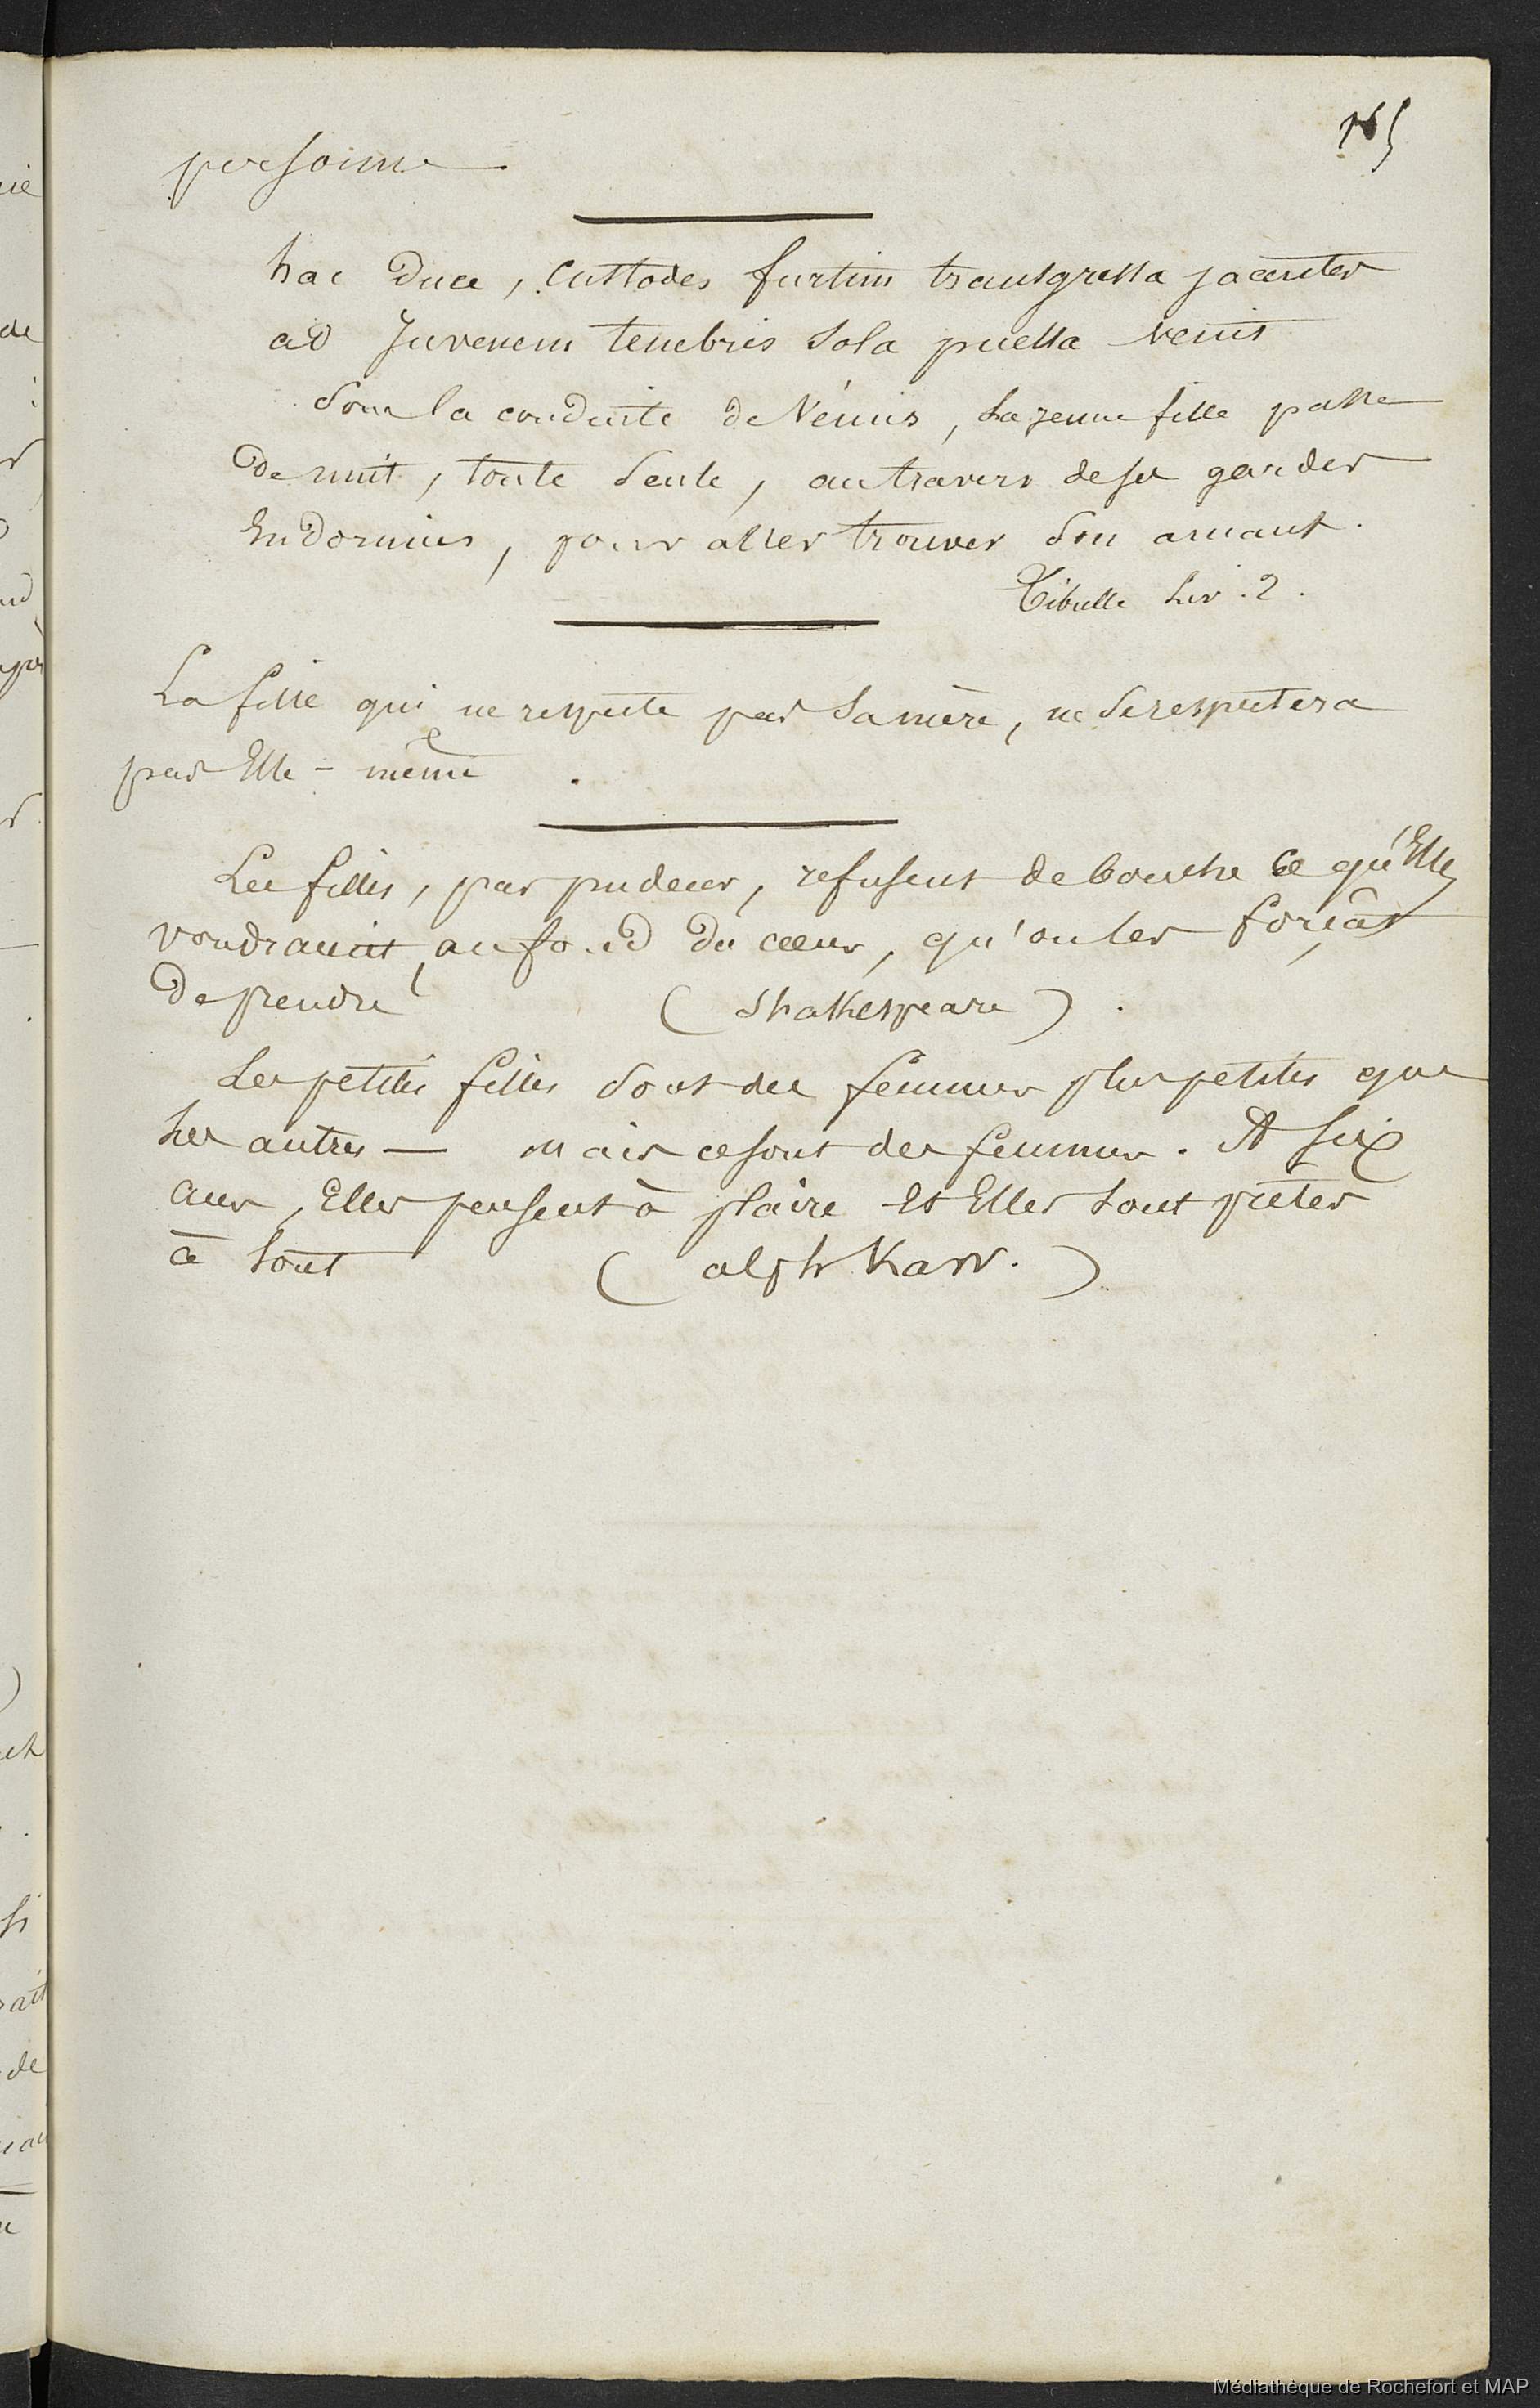 165
personne
hac duce, custodes furtim transgressa jacentes
ad Juvenem tenebris sola puella venit
sous la conduite de Vénus, la jeune fille passe
de nuit, toute seule, au travers de ses gardes
Endormies, pour aller trouver son amant.
Tibulle Liv. 2.
La fille qui ne respecte pas sa mère, ne se respectera
pas Elle-même.
Les filles, par pudeur, refusent de bouche ce qu'Elles
voudraient, au fond du cœur, qu'on les forçât
de prendre (Shakespeare).
Les petites filles sont des femmes plus petites que
les autres — mais ce sont des femmes. A six
ans, Elles pensent à plaire et Elles sont prêtes
à tout (alph Karr.)
Médiathèque de Rochefort et MAP